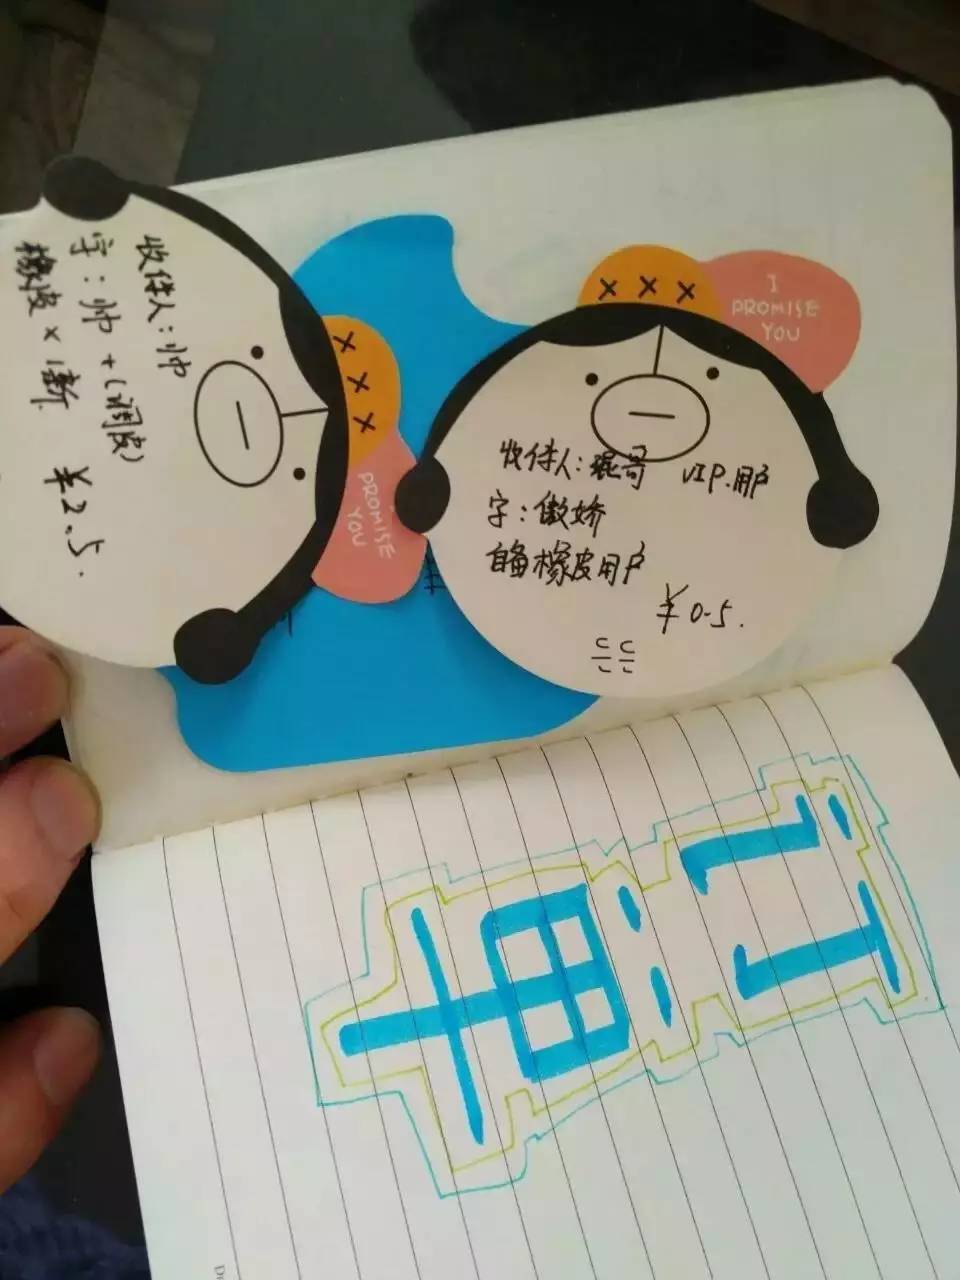 收件人:帅
字:帅+(调皮)
橡皮×1新
¥2.5.
PROMISE
YOU
I
PROMISE
YOU
收件人:琨哥 VIP.用户
字:傲娇
自备橡皮用户
¥0.5.